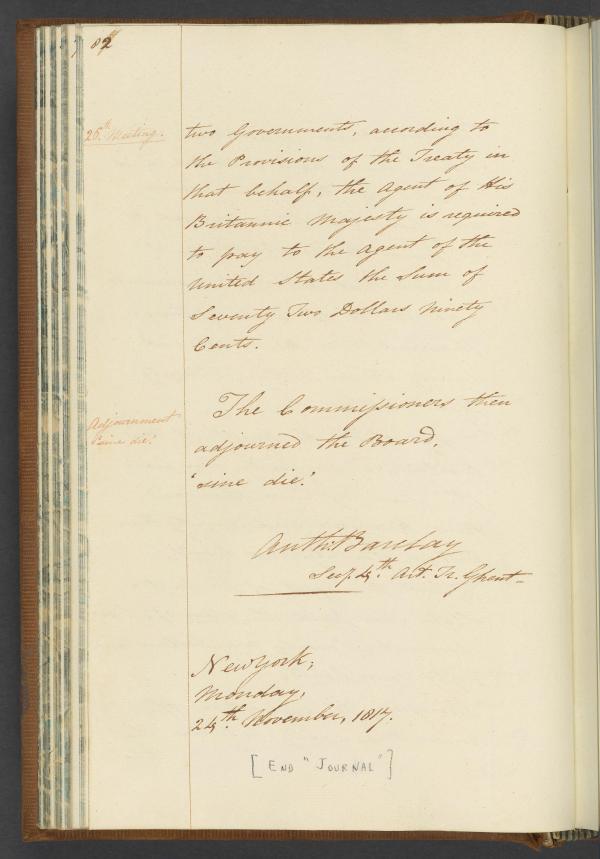 82
26th Meeting.
two Governments, according to
the Provisions of the Treaty in
that behalf, the Agent of His
Britannic Majesty is required
to pay to the Agent of the
United States the Sum of
Seventy Two Dollars Ninety
Cents.
Adjournment
'sine die.'
The Commissioners then
adjourned the Board,
'sine die.'
Anth: Barclay
Sec. 4th Art. Tr. Ghent—
New York,
Monday,
24th November, 1817.
[END "JOURNAL"]